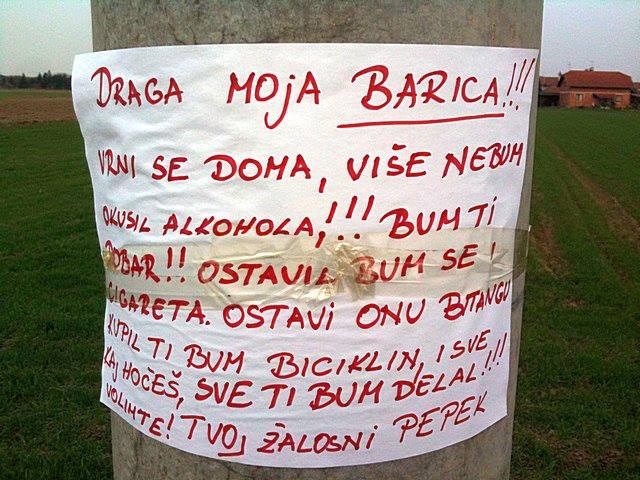 DRAGA MOJA BARICA!!!
VRNI SE DOMA, VIŠE NEBUM
OKUSIL ALKOHOLA,!!! BUM TI
DOBAR!! OSTAVIL BUM SE I
CIGARETA. OSTAVI ONU BITANGU
KUPIL TI BUM BICIKLIN, I SVE
KAJ HOČEŠ, SVE TI BUM DELAL!!!
VOLIMTE! TVOJ ŽALOSNI PEPEK